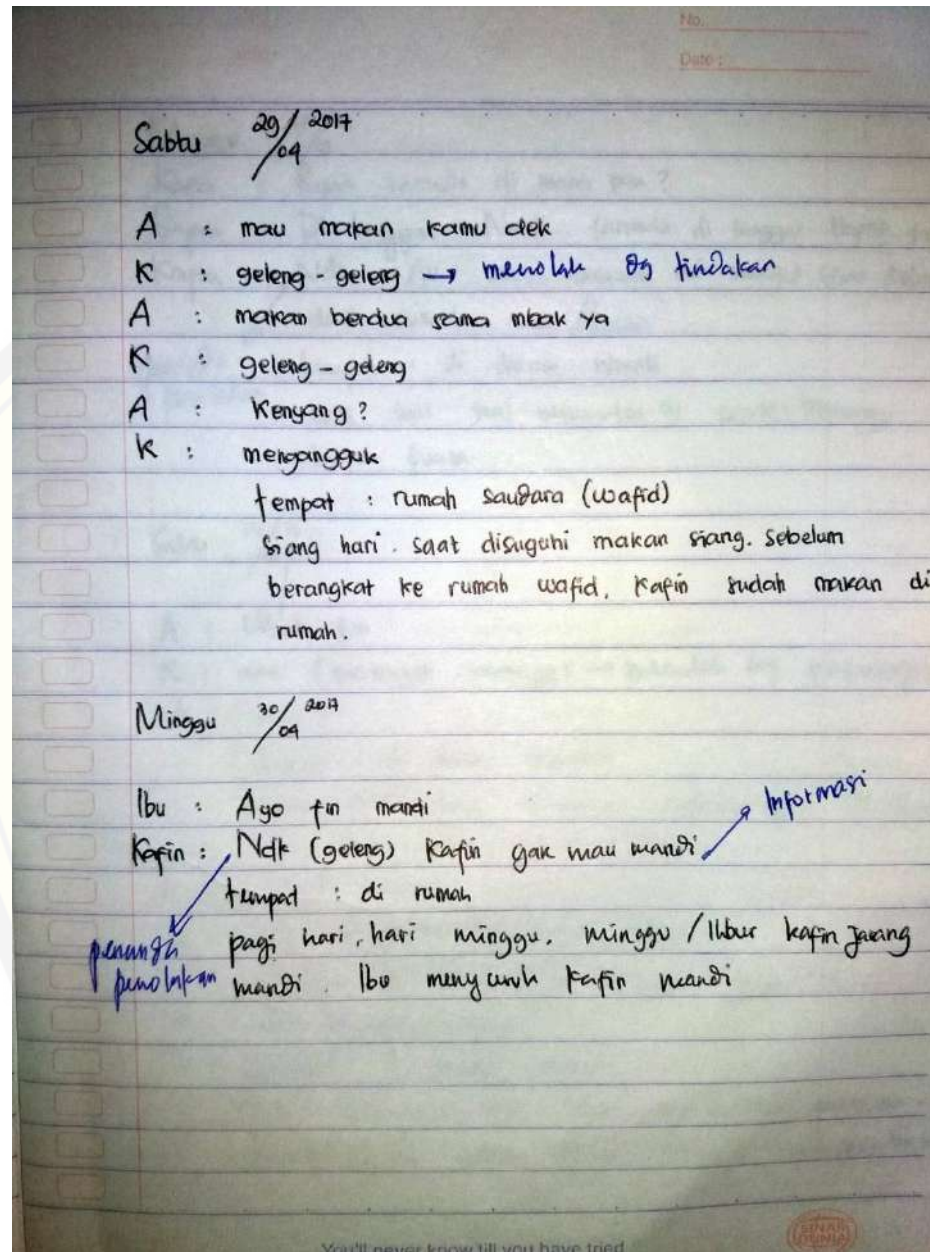 No.
Date :
Sabtu 29/04 2017
A : mau makan kamu dek
K : geleng - geleng → menolak dg tindakan
A : makan berdua sama mbak ya
K : geleng - geleng
A : Kenyang ?
K : mengangguk
tempat : rumah saudara (wafid)
siang hari. saat disuguhi makan siang. sebelum
berangkat ke rumah wafid, kafin sudah makan di
rumah.
Minggu 30/04 2017
Ibu : Ayo fin mandi
Informasi
Kafin : Ndk (geleng) Kafin gak mau mandi
tempat : di rumah
penanda
penolakan
pagi hari, hari minggu. minggu / libur kafin jarang
mandi. Ibu menyuruh kafin mandi
You'll never know till you have tried
SINAR DUNIA